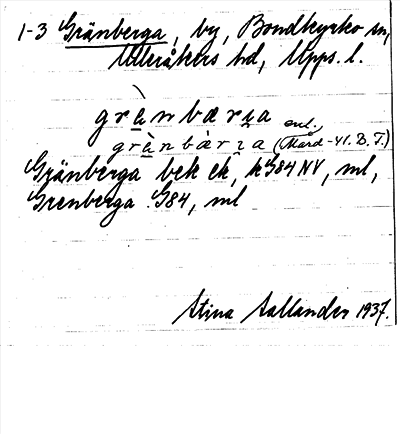 1-3 Gränberga, by, Bondkyrko sn,
Ulleråkers hd, Upps. l.
grànbærıa
grànbàrıa enl. (Mård -41. D. T.)
Gränberga bek ek, kG84 NV, ml,
Grenberga G84, ml
Stina Sallander 1937.